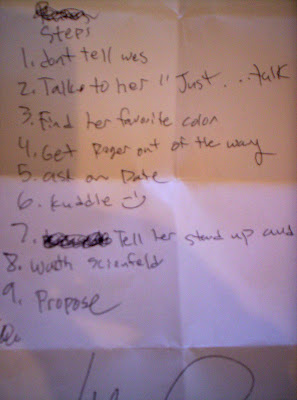 Steps
1. dont tell wes
2. Talk to her !! Just...talk
3. Find her favorite color
4. Get Roger out of the way
5. ask on Date
6. Kuddle
7. Tell her stand up and
8. Wacth scienfeld
9. Propose